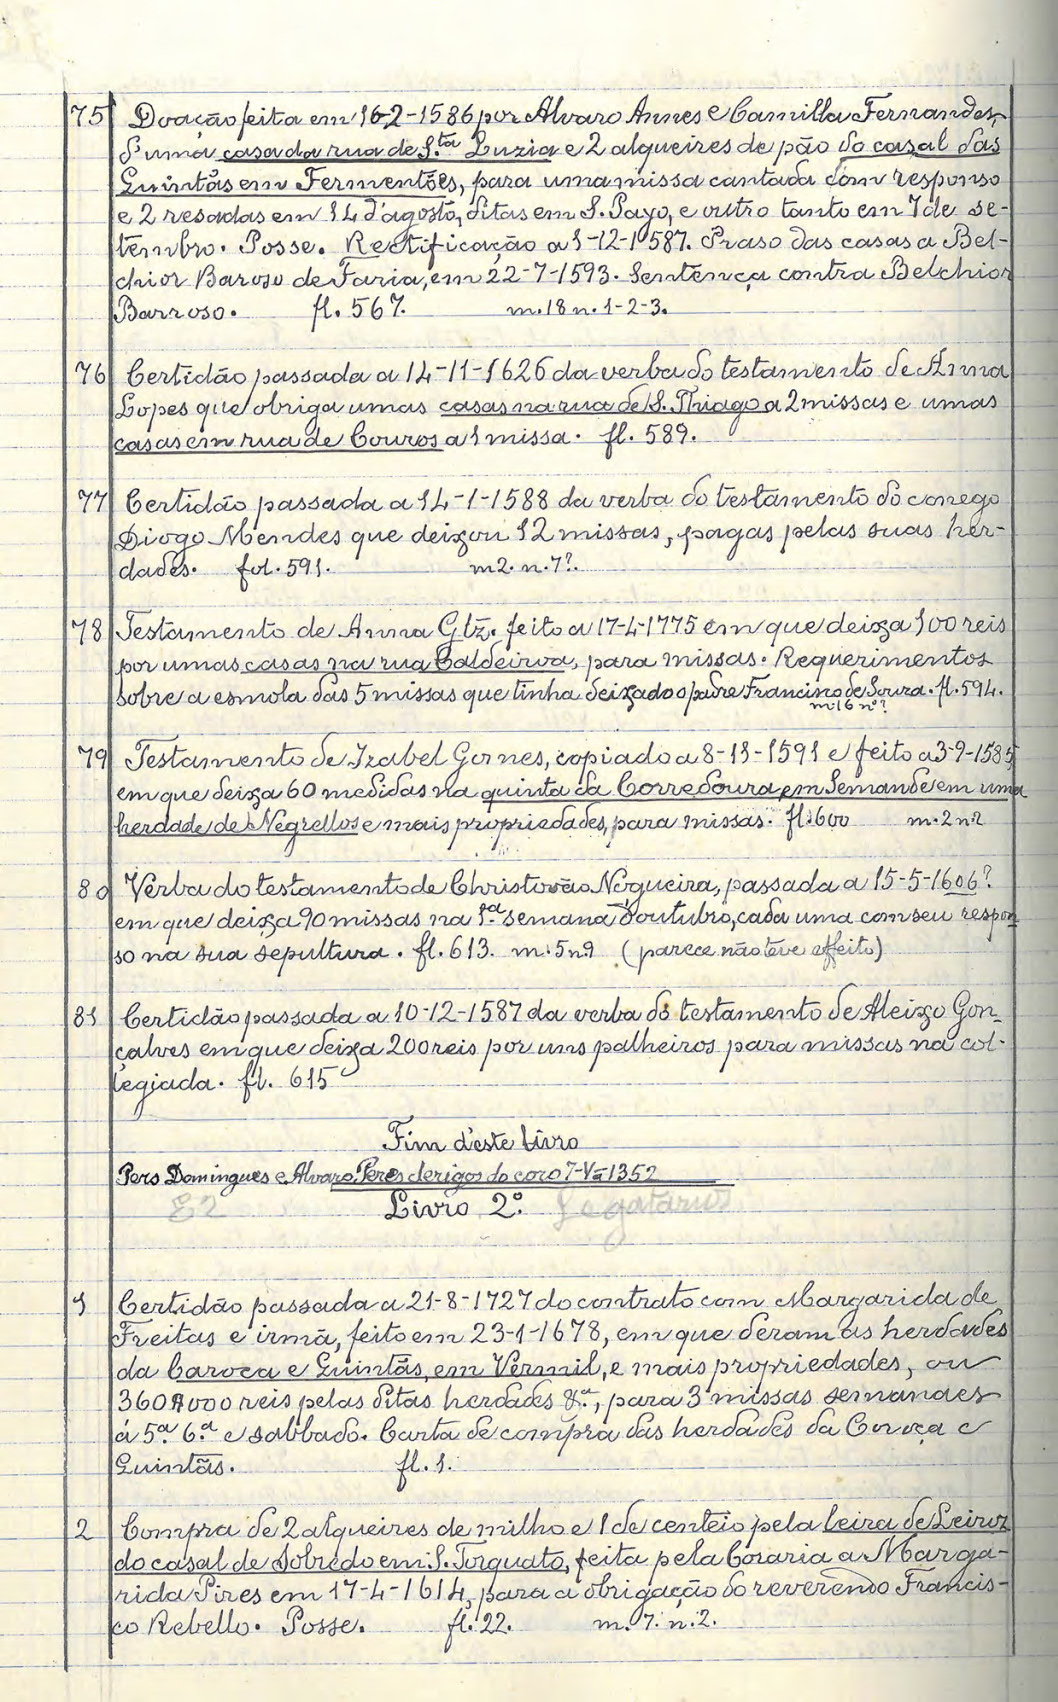 75 Doação feita em 16-2-1586 por Alvaro Annes e Camilla Fernandes,
d'uma casa da rua de S.ta Luzia e 2 alqueires de pão do casal das
Quintãs em Fermentões, para uma missa cantada com responso
e 2 resadas em 14 d'agosto, ditas em S. Payo, e outro tanto em 7 de se-
tembro. Posse. Rectificação a 1-12-1587. Praso das casas a Bel-
chior Baroso de Faria, em 22-7-1593. Sentença contra Belchior
Barroso. fl. 567. m. 18 n. 1-2-3.
76 Certidão passada a 14-11-1626 da verba do testamento de Anna
Lopes que obriga umas casas na rua de S. Thiago a 2 missas e umas
casas em rua de Couros a 1 missa. fl. 589.
77 Certidão passada a 14-1-1588 da verba do testamento do conego
Diogo Mendes que deixou 12 missas, pagas pelas suas her-
dades. fol. 591. m 2. n. 7?.
78 Testamento de Anna Glz. feito a 17-4-1775 em que deixa 100 reis
por umas casas na rua Caldeiroa, para missas. Requerimentos
sobre a esmola das 5 missas que tinha deixado o padre Francisco de Souza. fl. 594.
m. 16 nº?
79 Testamento de Izabel Gomes, copiado a 8-11-1591 e feito a 3-9-1585
em que deixa 60 medidas na quinta da Corredoura em Semande em uma
herdade de Negrellos e mais propriedades, para missas. fl. 600 m. 2 n. 2
80 Verba do testamento de Christovão Nogueira, passada a 15-5-1606?
em que deixa 90 missas na 1.ª semana d'outubro, cada uma com seu respon
so na sua sepultura. fl. 613. m. 5 n. 9 (parece não teve effeito)
81 Certidão passada a 10-12-1587 da verba do testamento de Aleixo Gon-
çalves em que deixa 200 reis por uns palheiros para missas na col-
legiada. fl. 615
Fim d'este livro
Pero Domingues e Alvaro Peres clerigos do coro 7-V-1352
E2 Livro 2.º Legatarios
1 Certidão passada a 21-8-1727 do contrato com Margarida de
Freitas e irmã, feito em 23-1-1678, em que deram as herdades
da Caroça e Quintãs, em Vermil, e mais propriedades, ou
360$000 reis pelas ditas herdades &.ª, para 3 missas semanaes
á 5.ª 6.ª e sabbado. Carta de compra das herdades da Coroça e
Quintãs. fl. 1.
2 Compra de 2 alqueires de milho e 1 de centeio pela leira de Leiroz
do casal de Sobredo em S. Torquato, feita pela Coraria a Marga-
rida Pires em 17-4-1614, para a obrigação do reverendo Francis-
co Rebello. Posse. fl. 22. m. 7. n. 2.